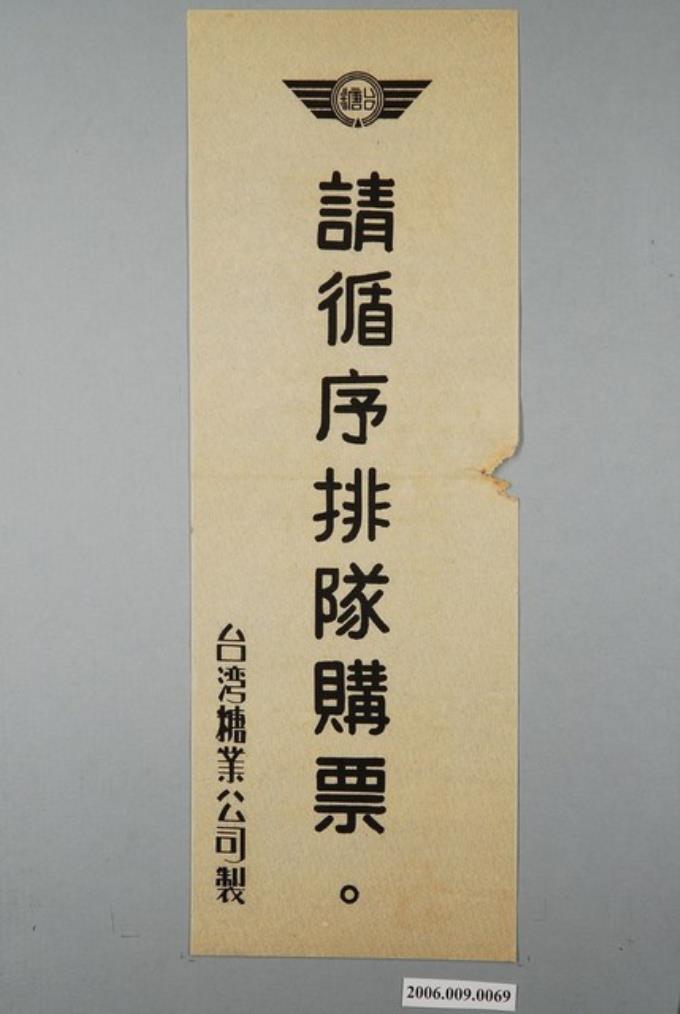 台糖
請循序排隊購票。
台湾糖業公司製
2006.009.0069